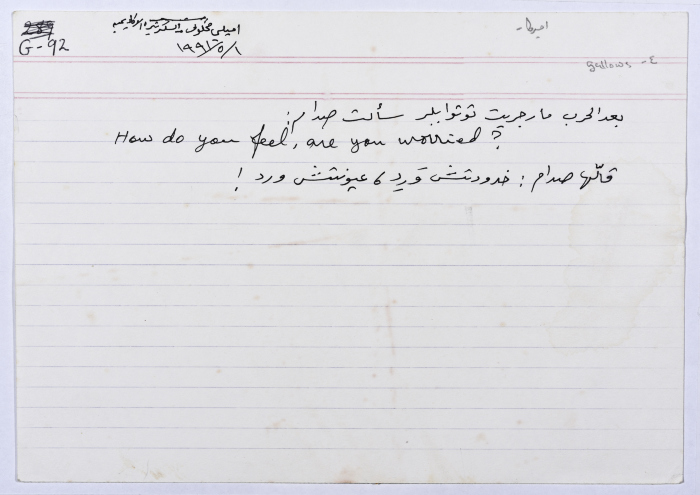 G-92
اميلي مخلوف، السكرتيرة الاكاديمية
١٩٩١/٥/١
اميركا -
gallows - ٤
بعد الحرب مارجريت توتوايلر سألت صدام:
How do you feel, are you worried?
قالّها صدام: خدودتش وَرِد، عيونتش ورد!